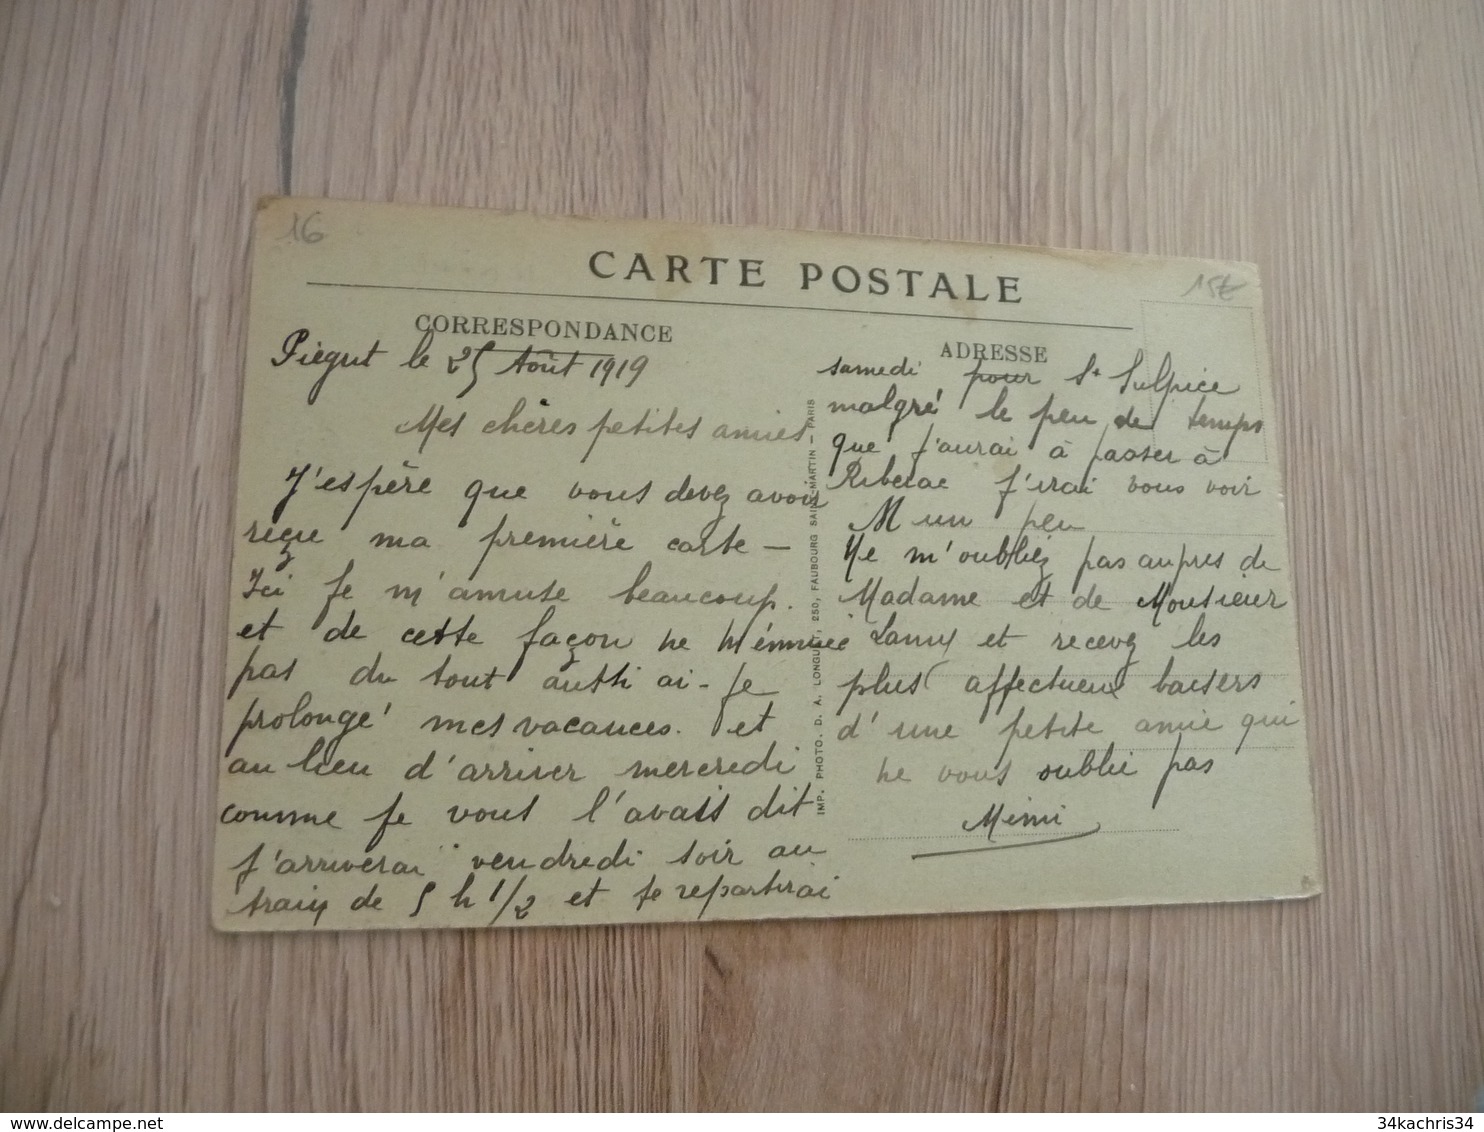 16
15€
CARTE POSTALE
CORRESPONDANCE
Piégut le 25 Août 1919
Mes chères petites amies,
J'espère que vous devez avoir
reçu ma première carte —
Ici je m'amuse beaucoup.
et de cette façon ne m'ennuie
pas du tout aussi ai-je
prolongé mes vacances. et
au lieu d'arriver mercredi
comme je vous l'avais dit
j'arriverai vendredi soir au
train de 5 h 1/2 et je repartirai
IMP. PHOTO. D. A. LONGUET, 250, FAUBOURG SAINT-MARTIN — PARIS
ADRESSE
samedi pour St Sulpice
malgré le peu de temps
que j'aurai à passer à
Riberac j'irai vous voir
un peu
Ne m'oubliez pas auprès de
Madame et de Monsieur
Lamy et recevez les
plus affectueux baisers
d'une petite amie qui
ne vous oublie pas
Mimi
34kachris34
www.delcampe.net